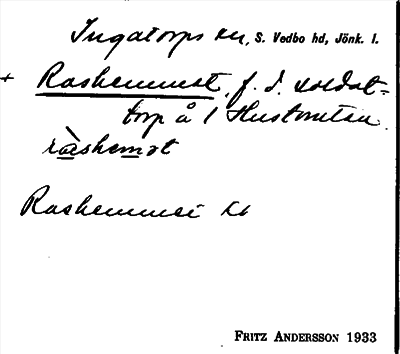 Ingatorps sn, S. Vedbo hd, Jönk. l.
+ Rashemmet, f. d. soldat-
torp å
ràshemot
Rashemmet
FRITZ ANDERSSON 1933